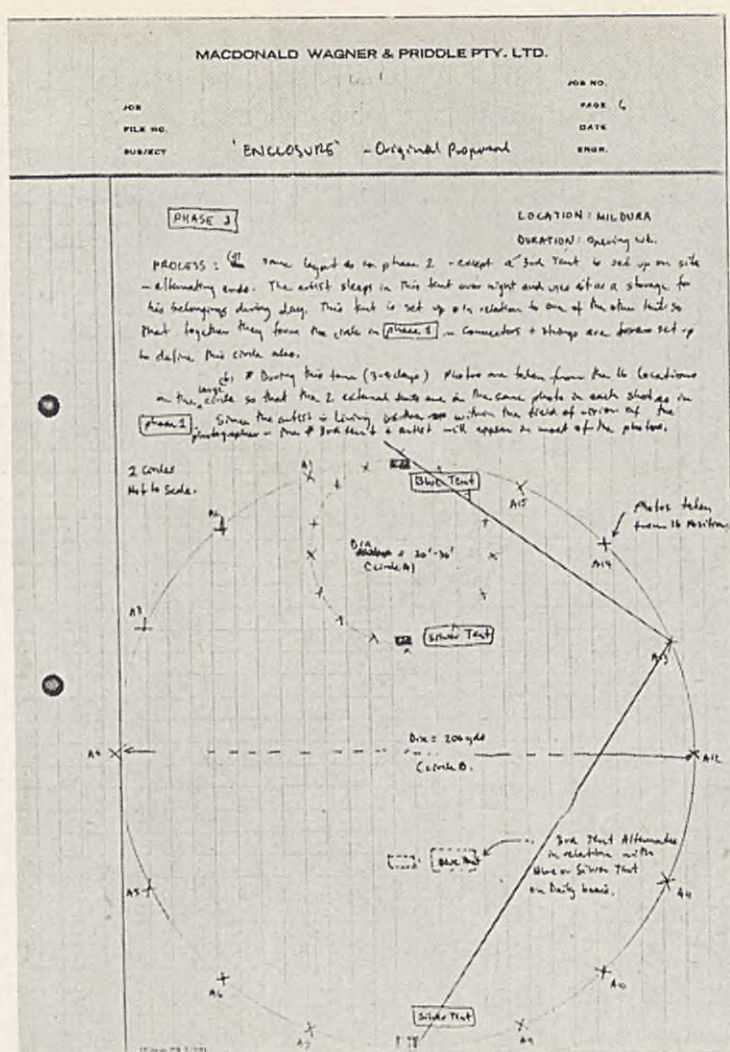 MACDONALD WAGNER & PRIDDLE PTY. LTD.
JOB NO.
JOB
PAGE 6
FILE NO.
DATE
SUBJECT 'ENCLOSURE' - Original Proposal
ENGR.
PHASE 3
LOCATION: MILDURA
DURATION: Opening wk.
PROCESS: (a) Same layout as in phase 2 - except a 3rd Tent is set up on site
- alternating ends. The artist sleeps in this tent over night and uses it as a storage for
his belongings during day. This tent is set up in relation to one of the other tents so
that together they form the circle in phase 1 Connectors + strings are set up
to define this circle also.
During this time (3-4 days) Photos are taken from the 16 locations
on the large circle so that the 2 external tents are in the same photo in each shot as in
phase 2. Since the artist is Living within the field of vision of the
photographer - the 3rd tent + artist will appear in most of the photos.
2 Circles
Not to Scale.
A1
Blue Tent
A15
A2
Photos taken
from 16 Positions
Dia = 20'-30'
(Circle A)
A14
A3
Silver Tent
A13
Dia = 200 yds
(Circle B.
A4
A12
3rd Tent Alternates
in relation with
Blue or Silver Tent
on Daily basis.
Blue Tent
A5
A11
A6
A10
Silver Tent
A7
A9